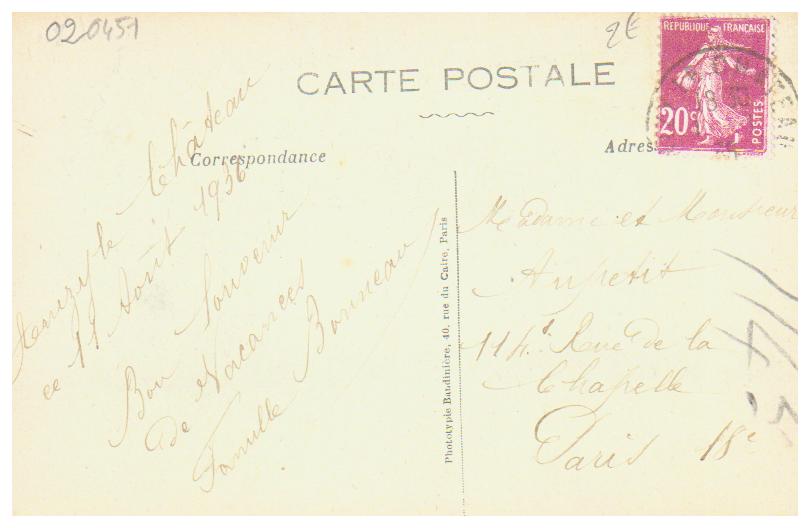 020451
2€
CARTE POSTALE
RÉPUBLIQUE FRANÇAISE
20c
POSTES
Correspondance
Adres
le Château
ce 11 Août 1936
Bon Souvenir
de Vacances
Famille Bonneau
Phototypie Baudinière, 40, rue du Caire, Paris
Madame et Monsieur
Aupetit
114 Rue de la
Chapelle
Paris 18e